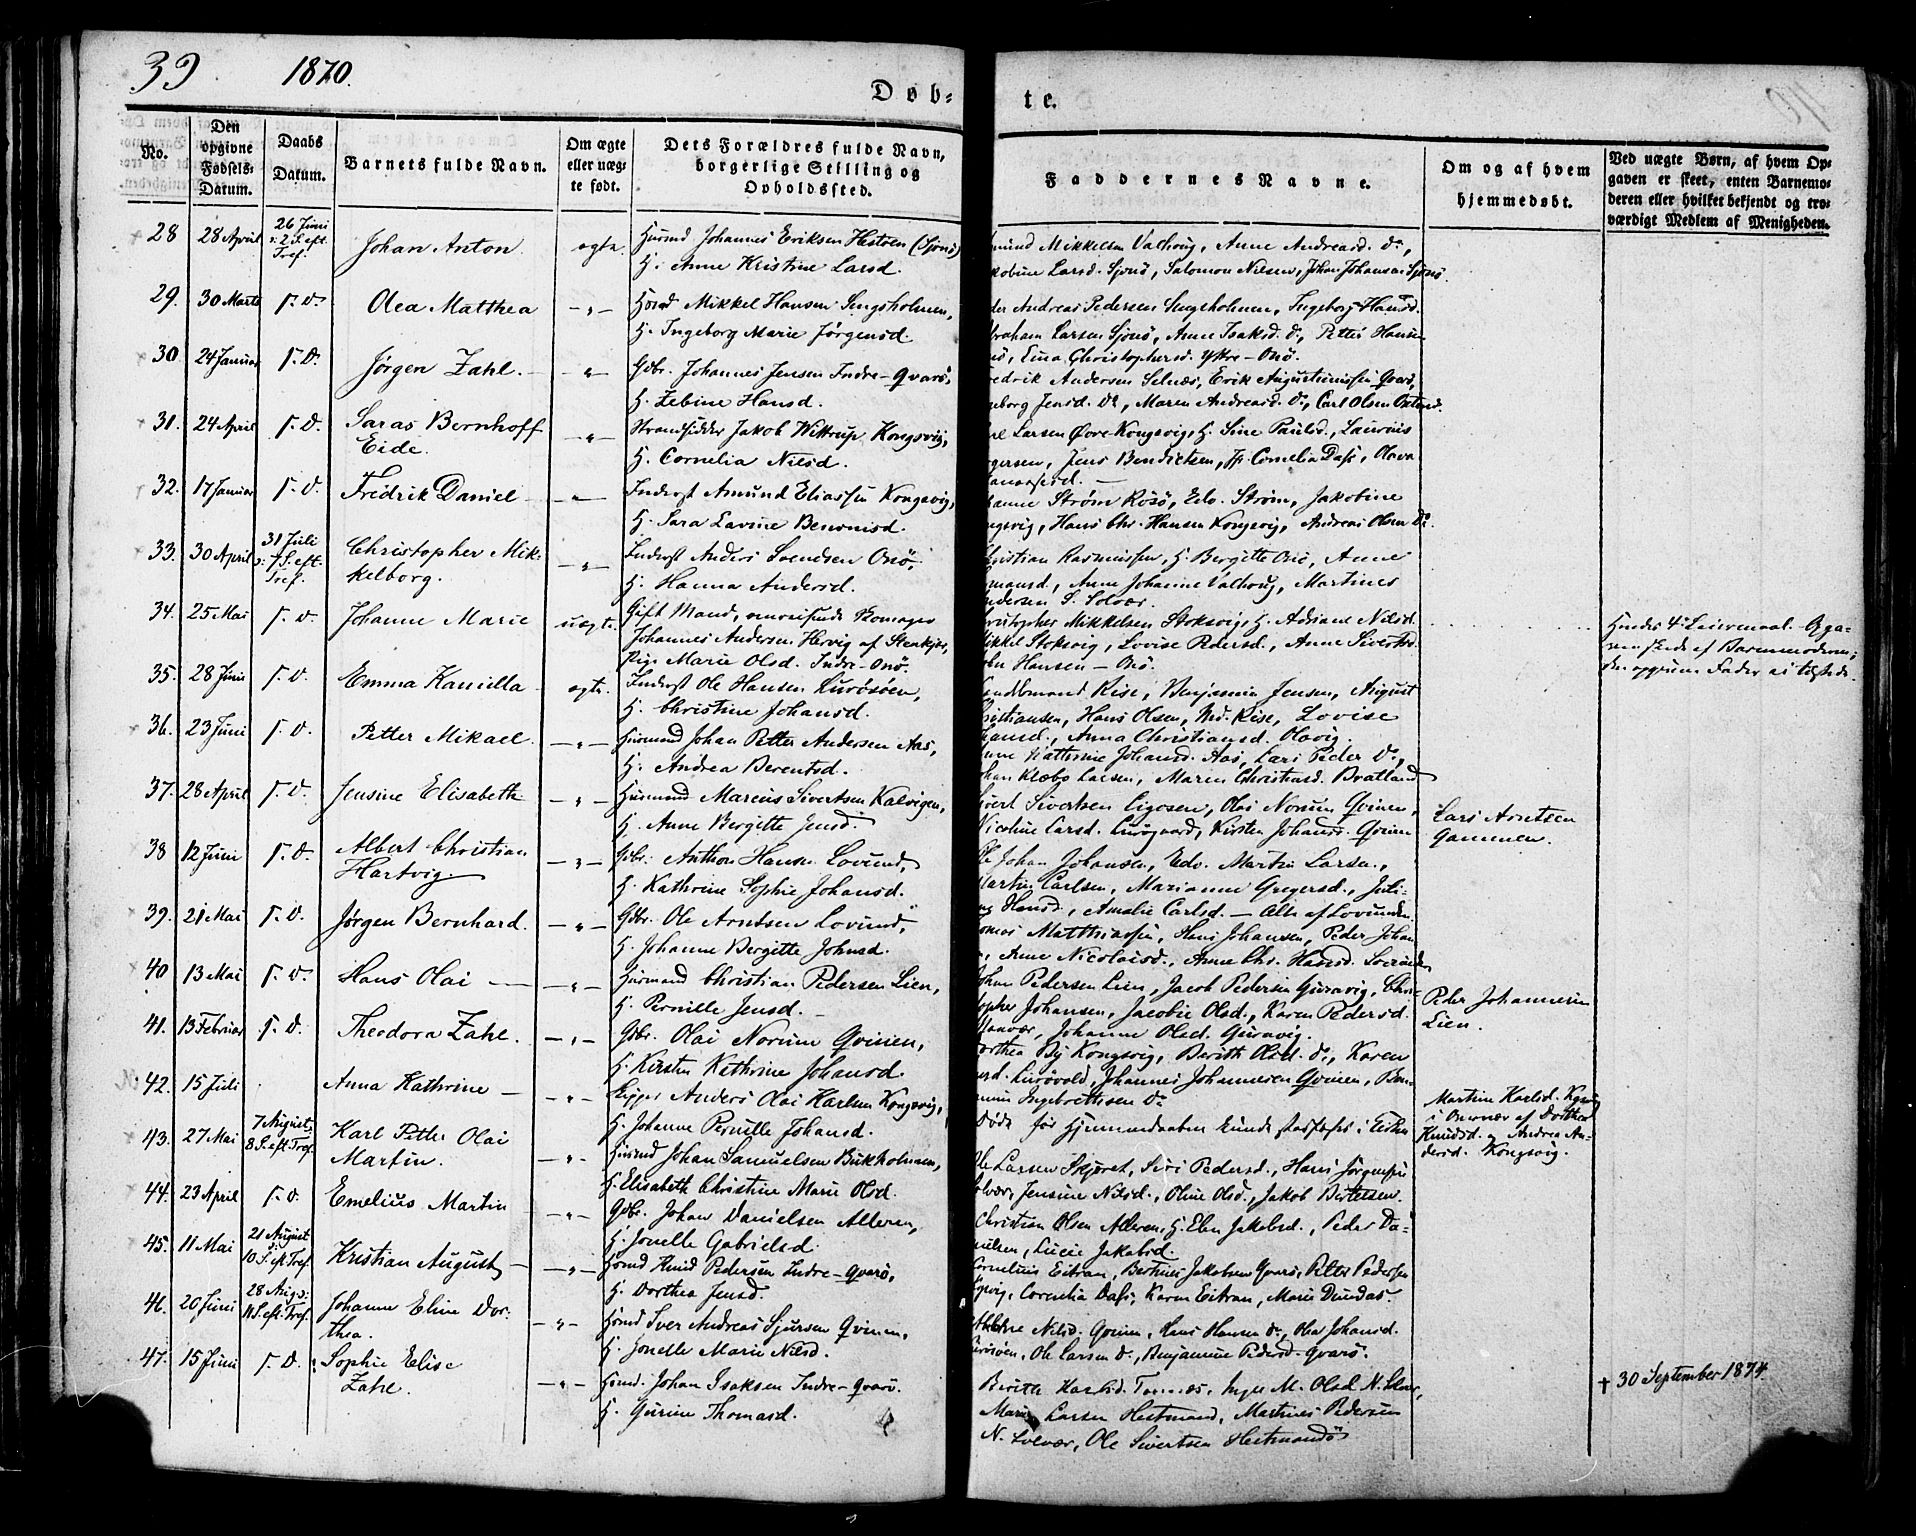 39
1870.
Døb-
te.
No.
Den opgivne Fødsels-Datum.
Daabs Datum.
Barnets fulde Navn.
Om ægte eller uæg-te født.
Dets Forældres fulde Navn, borgerlige Stilling og Opholdssted.
Faddernes Navne.
Om og af hvem hjemmedøbt.
Ved uægte Børn, af hvem Op-gaven er skeet, enten Barnemo-deren eller hvilket bekjendt og tro-værdigt Medlem af Menigheden.
28 28 April 26 Juni 2 S. eft. Tref. Johan Anton ægte. Husmd Johannes Eriksen Hestøen (Sjonø)
H. Anne Kristine Larsd.
Mikkelsen Valhoug, Anne Andreasd. do,
Larsd. Sjonø, Salomon Nilsen, Johan Johansen Sjonø
29. 30 Marts T. D. Olea Matthea -"- Husmd Mikkel Hansen Sengsholmen,
H. Ingeborg Marie Jørgensd.
Andreas Pedersen Sengsholmen, Ingeborg Hansd.
Larsen Sjonø, Anne Isaksd. do, Petter Hansen
30 24 Januar T. D. Jørgen Zahl. -"- Gdbr. Johannes Jensen Indre-Qvarø,
H. Zebine Hansd.
Christophersd. Yttre-Onø.
Andersen Selnæs, Erik Augustinussen Qvarø,
Jensd. do, Maren Andreasd. do, Carl Olsen
31. 24 April T. D. Saras Bernhoff
Eide. -"- Strandsidder Jakob Wittrup Kongsvig,
H. Cornelia Nilsd.
Larsen Øvre-Kongsvig, H. Sine Paulsd., Laurits
Jens Bendictsen, Jfr. Cornelia Dass, Olava
32. 17 Januar T. D. Fredrik Daniel -"- Inderst Amund Eliassen Kongsvig,
H. Sara Lavine Benonisd.
Strøm Rosø, Edv. Strøm, Jakobine
Kongsvig, Hans Chr. Hansen Kongsvig, Andreas Olsen do.
33. 30 April 31 Juli 7 S. eft. Tref. Christopher Mik-
kelborg. -"- Inderst Anders Svendsen Onø,
H. Hanna Andersd.
Rasmussen, H. Bergitte Onø, Anne
Anne Johanne Valhoug, Martines
Andersen S. Solvær.
34. 25 Mai T. D. Johanne Marie uægte. Gift Mand, omreisende
Johannes Andersen Hervig af Stenkjær,
Pige Marie Olsd. Indre-Onø.
Mikkelsen Stoksvig, H. Adriane Nilsd.
Mikkel Stoksvig, Lovise Pedersd., Anne Sivertsd.
Hansen - Onø.
Hendes 4de Leiermaal. Opga-
ven skede af Barnemoderen;
den opgivne Fader ei tilstede.
35. 28 Juni T. D. Emma Kamilla ægte. Inderst Ole Hansen Lurøsøen,
H. Christine Johansd.
Rise, Benjamin Jensen, August
Christiansen, Hans Olsen, Md. Rise, Lovise
36. 23 Juni T. D. Petter Mikael. -"- Husmand Johan Petter Andersen Aas,
H. Andrea Berentsd.
Anna Christiansd. Olavig.
Kathrine Johansd. Aas, Lars Peder do,
Klæbo Larsen, Maren Christiansd. Bratland
37. 28 April T. D. Jensine Elisabeth -"- Husmand Marcus Sivertsen Kalvigen,
H. Anne Bergitte Jensd.
Sivert Sivertsen Ligosen, Olai Norum Qvinen,
Nicoline Larsd. Lurøgaard, Kirsten Johansd. Qvinen
Lars Arntsen
Gammen.
38 12 Juni T. D. Albert Christian
Hartvig. -"- Gdbr. Anthon Hansen Lovund,
H. Kathrine Sophie Johansd.
Ole Johan Johansen, Edv. Martin Larsen,
Martin Carlsen, Marianne Gregersd., Juli-
Hansd., Amalie Carlsd. - Alle af Lovunden.
39. 21 Mai T. D. Jørgen Bernhard. -"- Gdbr. Ole Arntsen Lovund,
H. Johanne Bergitte Johnsd.
Matthiassen, Hans Johansen, Peder Johan
Anne Nicolaisd., Anne Chr. Hansd. Lovunden
40 13 Mai T. D. Hans Olai -"- Husmand Christian Pedersen Lien,
H. Pernille Jensd.
Johan Pedersen Lien, Jacob Pedersen Guravig, Chri-
stopher Johansen, Jacobie Olsd., Karen Pedersd.
Johanne Olsd. Guravig.
Peder Johannesen
Lien.
41. 13 Februar T. D. Theodora Zahl. -"- Gdbr. Olai Norum Qvinen,
H. Kirsten Kathrine Johansd.
Dorthea By Kongsvig, Berith Olsd. do, Karen
Lurøvold, Johannes Johannesen Qvinen, Ben-
Ingebrethsen do
42. 15 Juli Anna Kathrine -"- Anders Olai Karlsen Kongsvig,
H. Johanne Pernille Johansd.
Døde før Hjemmedaaben kunde stadfæstes i Kirken
Martine Karlsd.
i Onenær af Dorthea
Knudsd. og Andrea An-
dersd. Kongsvig.
43. 27 Mai 7 August, 8 S. eft. Tref. Karl Petter Olai
Martin. -"- Husmd Johan Samuelsen Bukholmen,
H. Elisabeth Christine Marie Olsd.
Ole Larsen Skjæret, Siri Pedersd., Hans Jørgensen
Solvær, Jensine Nilsd., Oline Olsd., Jakob Bertelsen.
44. 23 April T. D. Emelius Martin -"- Gdbr. Johan Danielsen Alteren,
H. Jonelle Gabrielsd.
Christian Olsen Alteren, H. Elen Jakobsd., Peder Da-
nielsen, Lucie Jakobsd.
45. 11 Mai 21 August 10 S. eft. Tref. Kristian August -"- Husmd Knud Pedersen Indre-Qvarø,
H. Dorthea Jensd.
Cornelius Eitran, Bertines Jakobsen Qvarø, Petter Pedersen
Cornelia Dass, Karen Eitran, Marie Dundas.
46. 20 Juni 28 Aug. 11 S. eft. Tref. Johanne Eline Dor-
thea. -"- Husmd Iver Andreas Sjursen Qvinen,
H. Jonelle Marie Nilsd.
Nilsd. Qvinen, Hans Hansen do, Olea Johansd.
Lurøsøen, Ole Larsen do, Benjamine Pedersd. Qvarø.
47. 15 Juni T. D. Sophie Elise
Zahl. -"- Husmd. Johan Isaksen Indre-Qvarø.
H. Gurine Thomasd.
Berith Karlsd. Tonnes, Inger M. Olsd. N. Solvær,
Larsen Hestmand, Martines Pedersen
N. Solvær, Ole Sivertsen Hestmandø
† 30 September 1874